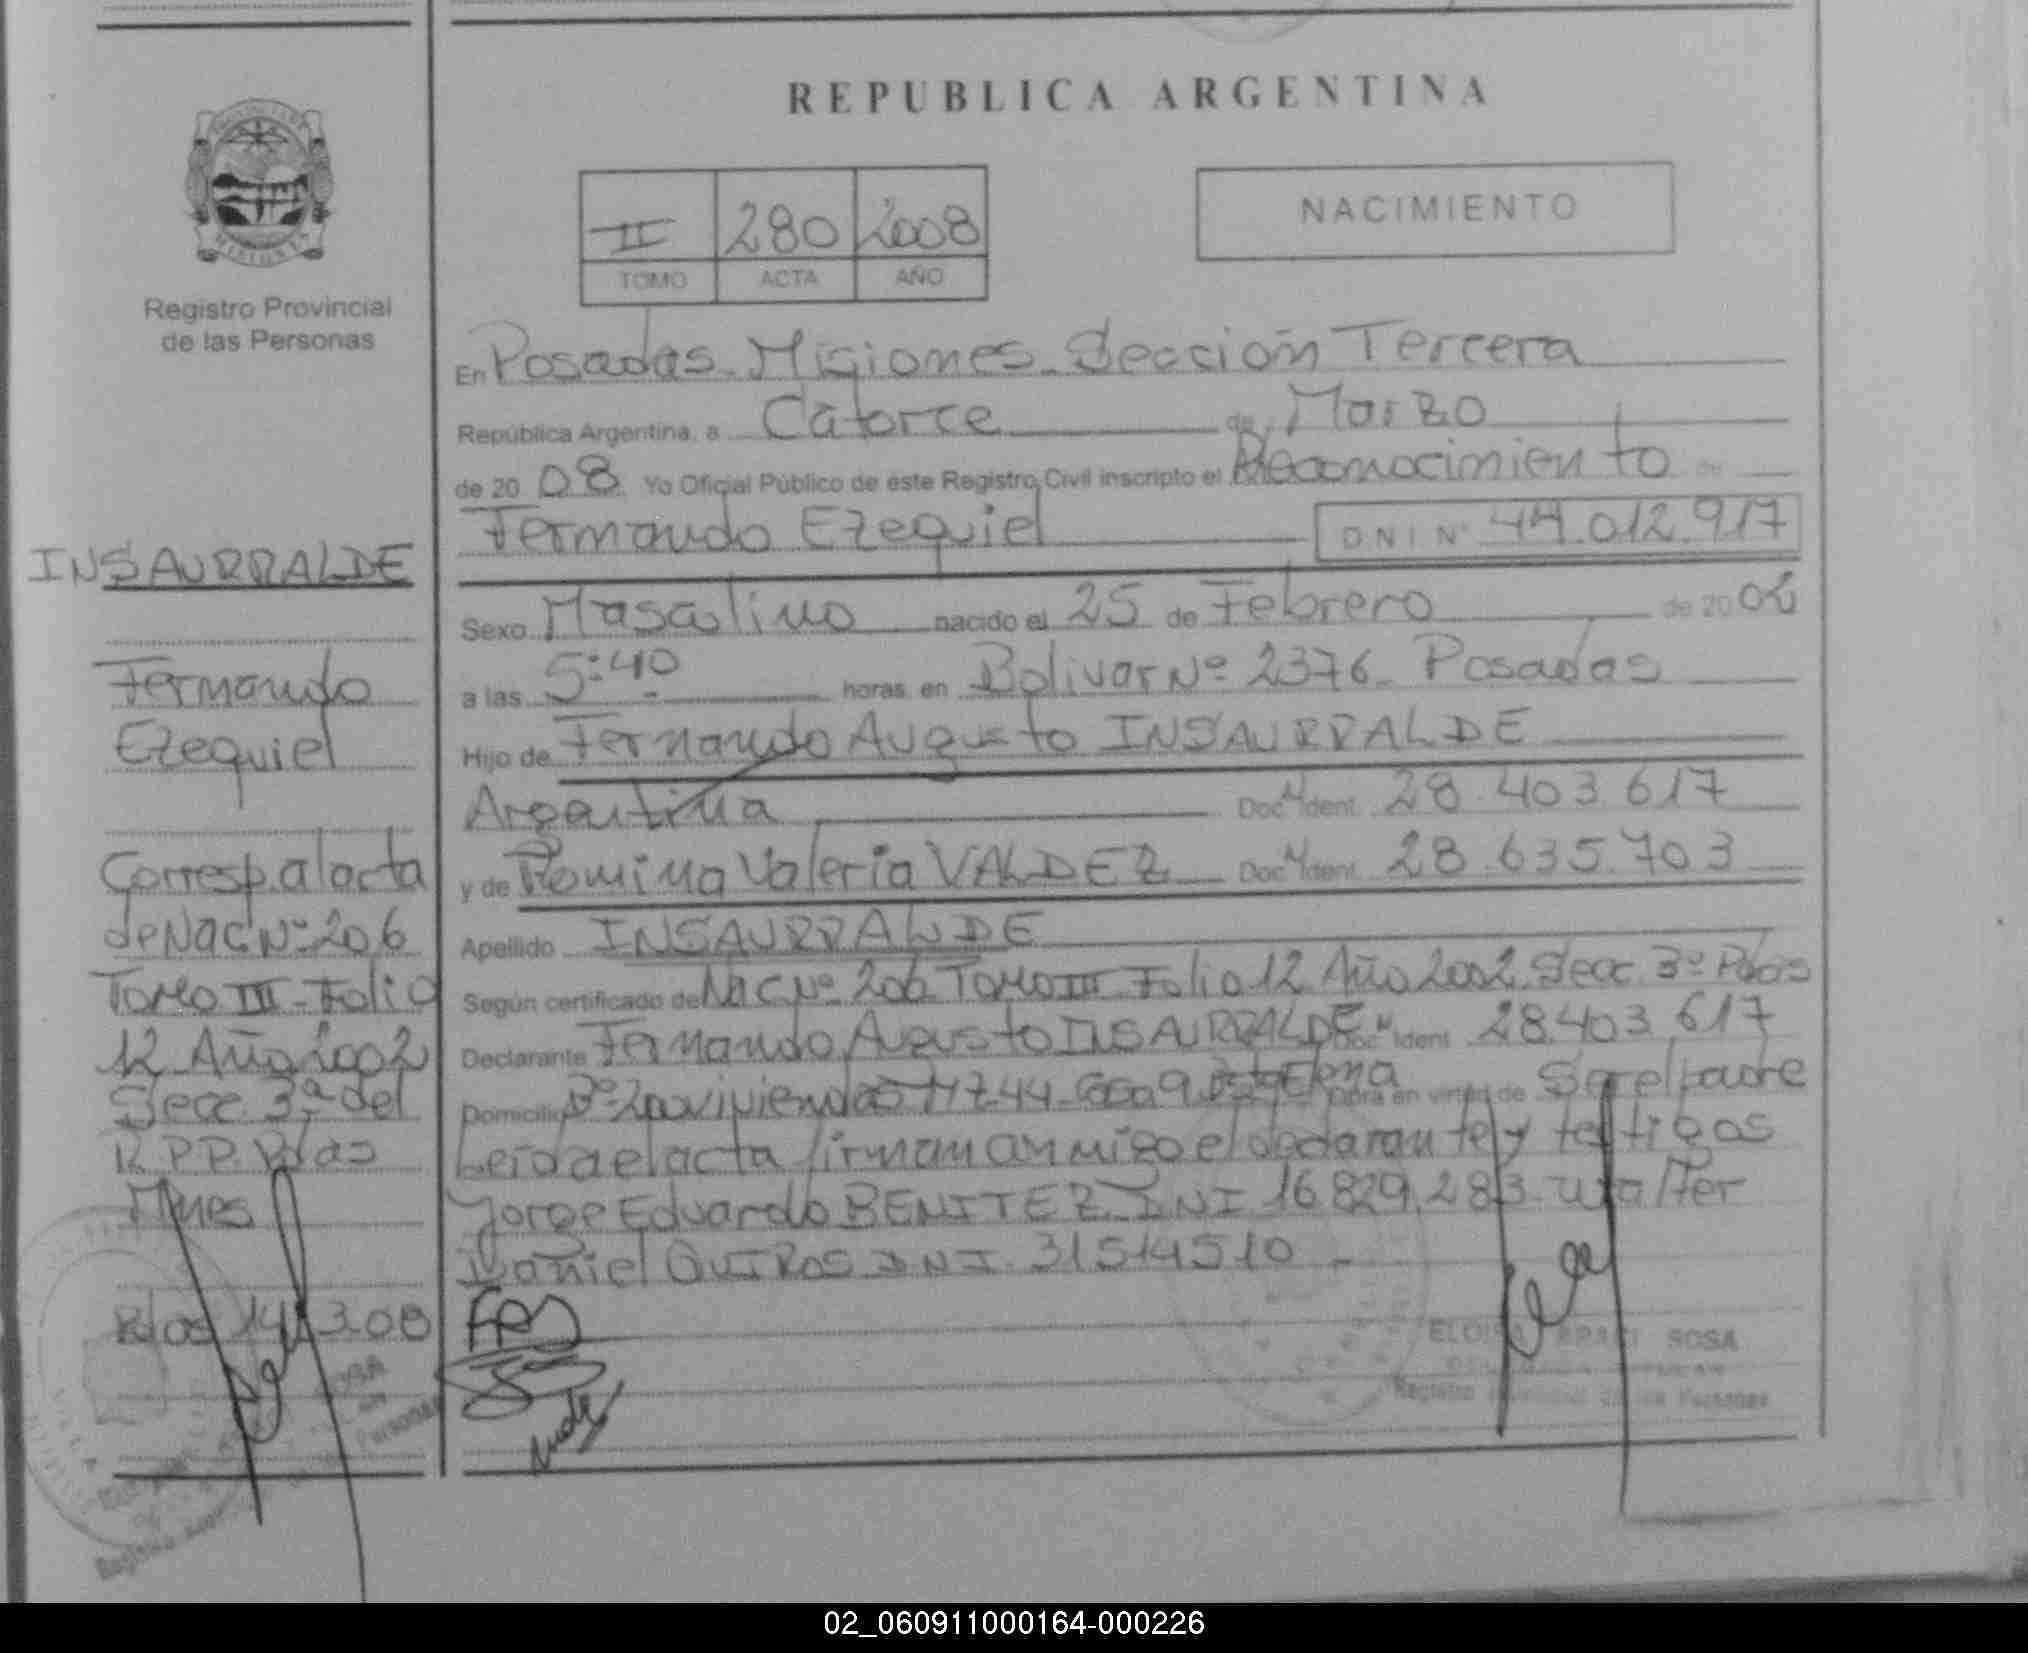 REPUBLICA ARGENTINA
NACIMIENTO
II 280 2008
TOMO ACTA AÑO
Registro Provincial
de las Personas
En Posadas Misiones Sección Tercera
República Argentina, a Catorce de Marzo
de 20 08 Yo Oficial Público de éste Registro Civil inscripto el Reconocimiento de
Fernando Ezequiel DNI Nº 44.012.917
Sexo Masculino nacido el 25 de Febrero de 20 02
a las 5:40 horas en Bolivar Nº 2376 Posadas
Hijo de Fernando Augusto INSAURRALDE
Argentina Doc. Ident. 28.403.617
y de Romina Valeria VALDEZ Doc. Ident. 28.635.703
Apellido INSAURRALDE
Según certificado de Nac Nº 206 Tomo III Folio 12 Año 2002 Secc. 3º Pdas
Declarante Fernando Augusto INSAURRALDE Doc. Ident. 28.403.617
Domicilio Bº 200 viviendas Mz 44 Obra en virtud de Ser el padre
Leida el acta firman conmigo el declarante y testigos
Jorge Eduardo BENITEZ DNI 16829.283 Walter
Daniel QUIROS DNI. 31514510
ELOISA ARACI SOSA
Registro Provincial de las Personas
INSAURRALDE
Fernando
Ezequiel
Corresp. al acta
de Nac Nº 206
Tomo III - Folio
12 Año 2002
Secc. 3ª del
R.P.P. Pdas
Mnes
Pdas 14.3.08
02_060911000164-000226